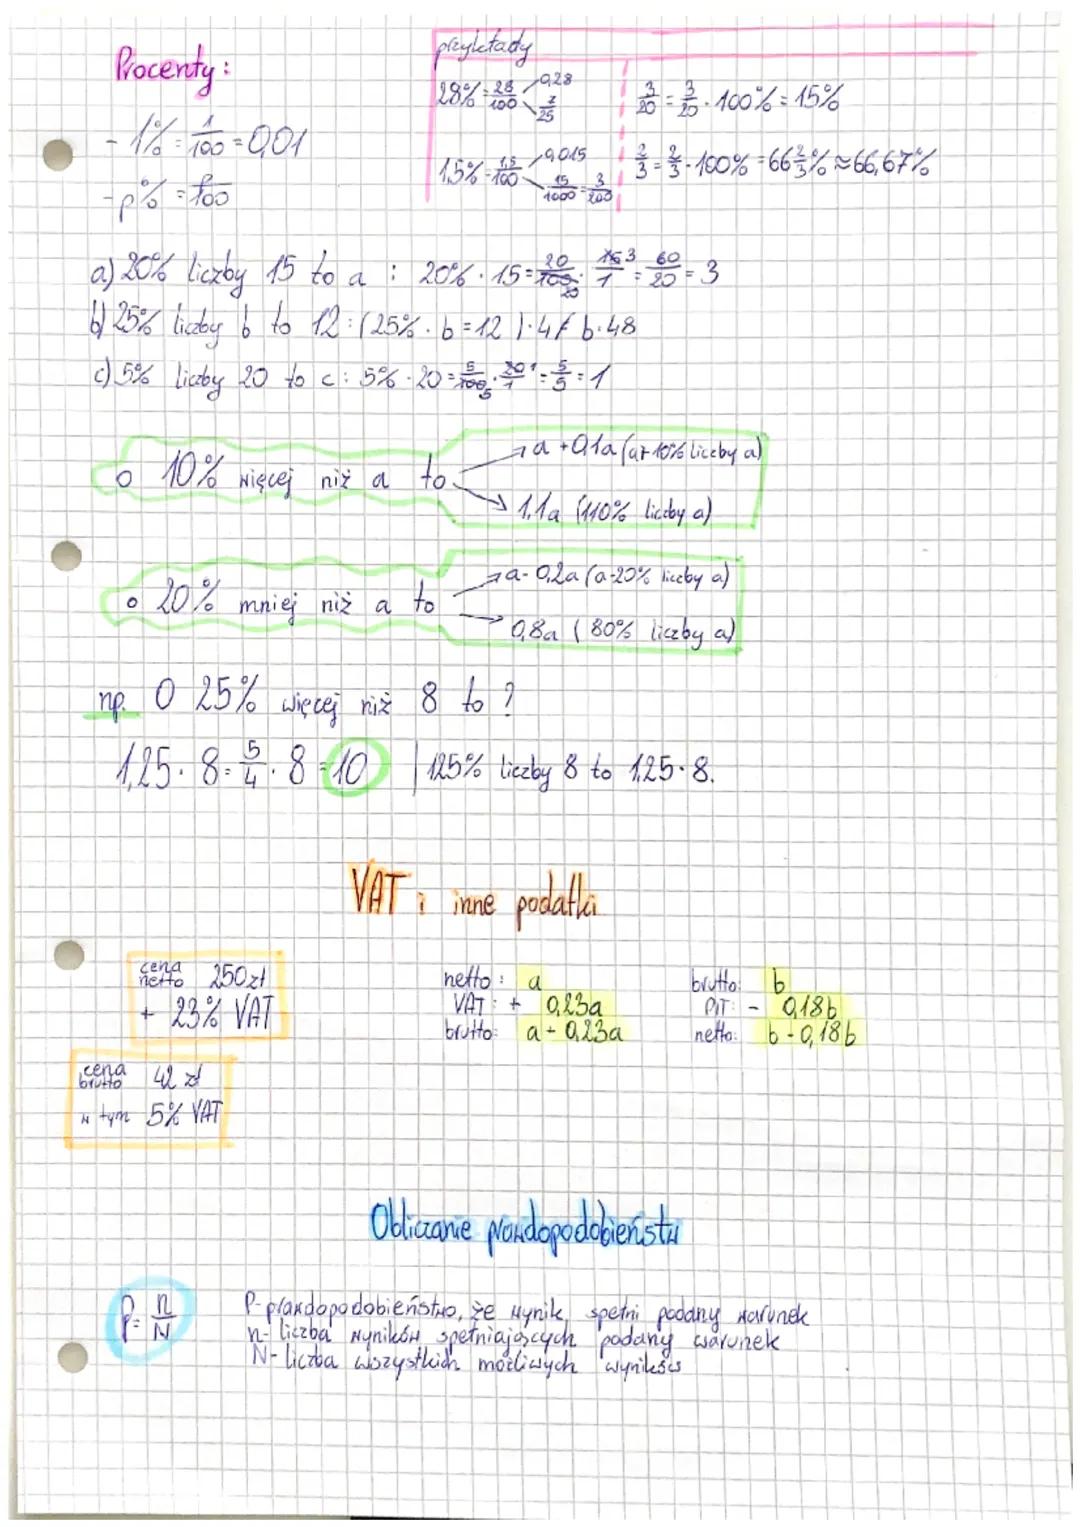 Procenty:
- 1% = 1/100 = 0,01
- p% = p/100
przykłady
28% = 28/100 0,28
7/25
1,5% = 1,5/100 0,015
15/1000 = 3/200
3/20 = 3/20 · 100% = 15%
2/3 = 2/3 · 100% = 66 2/3% ≈ 66,67%
a) 20% liczby 15 to a : 20% · 15 = 20/100 20 · 15 3/1 = 60/20 = 3
b) 25% liczby b to 12 : (25% · b = 12 ) · 4 / b · 48
c) 5% liczby 20 to c : 5% · 20 = 5/100 5 · 20 1/1 = 5/5 = 1
o 10% więcej niż a to
→ a + 0,1a (a + 10% liczby a)
→ 1,1a (110% liczby a)
o 20% mniej niż a to
→ a - 0,2a (a - 20% liczby a)
→ 0,8a (80% liczby a)
np. O 25% więcej niż 8 to ?
1,25 · 8 = 5/4 · 8 = 10 | 125% liczby 8 to 1,25 · 8.
VAT i inne podatki
cena netto 250 zł
+ 23% VAT
netto: a
VAT: + 0,23a
brutto: a + 0,23a
brutto: b
PIT: - 0,18b
netto: b - 0,18b
cena brutto 42 zł
w tym 5% VAT
Obliczanie prawdopodobieństw
P = n/N
P - prawdopodobieństwo, że wynik spełni podany warunek
n - liczba wyników spełniających podany warunek
N - liczba wszystkich możliwych wyników